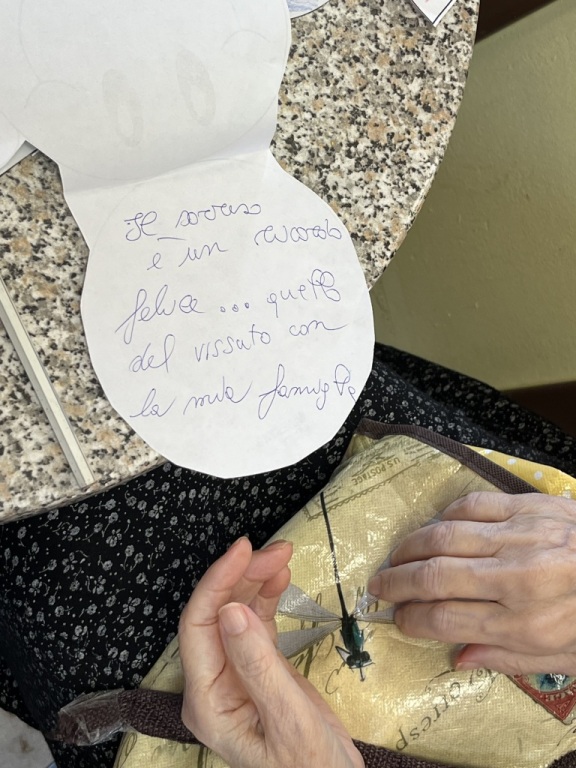 Il sorriso
è un ricordo
felice ... quello
del vissuto con
la mia famiglia
U.S. POSTAGE
Corresp